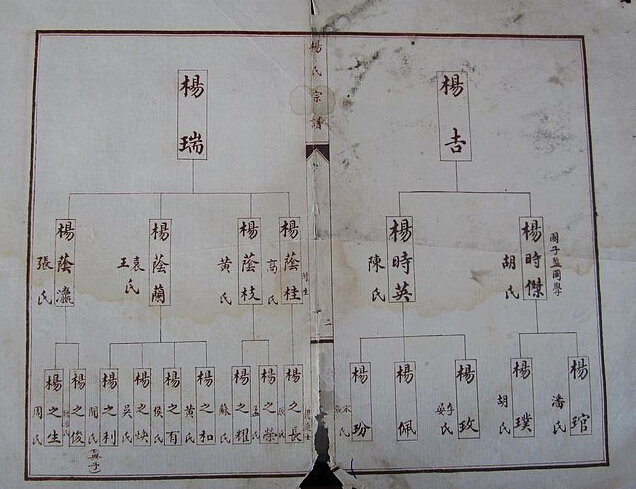 楊氏宗譜
二
楊吉
楊時傑
國子監國學
胡氏
楊時英
陳氏
楊琯
潘氏
楊璞
胡氏
楊玫
李吳氏
楊佩
楊玢
宋張氏
楊瑞
楊蔭桂
高氏
楊蔭枝
黃氏
楊蔭蘭
袁王氏
楊蔭瀛
張氏
楊之長
楊之榮
孟氏
楊之耀
蘇氏
楊之和
黃氏
楊之有
侯氏
楊之煥
吳氏
楊之利
閻氏
楊之俊
楊之生
周氏